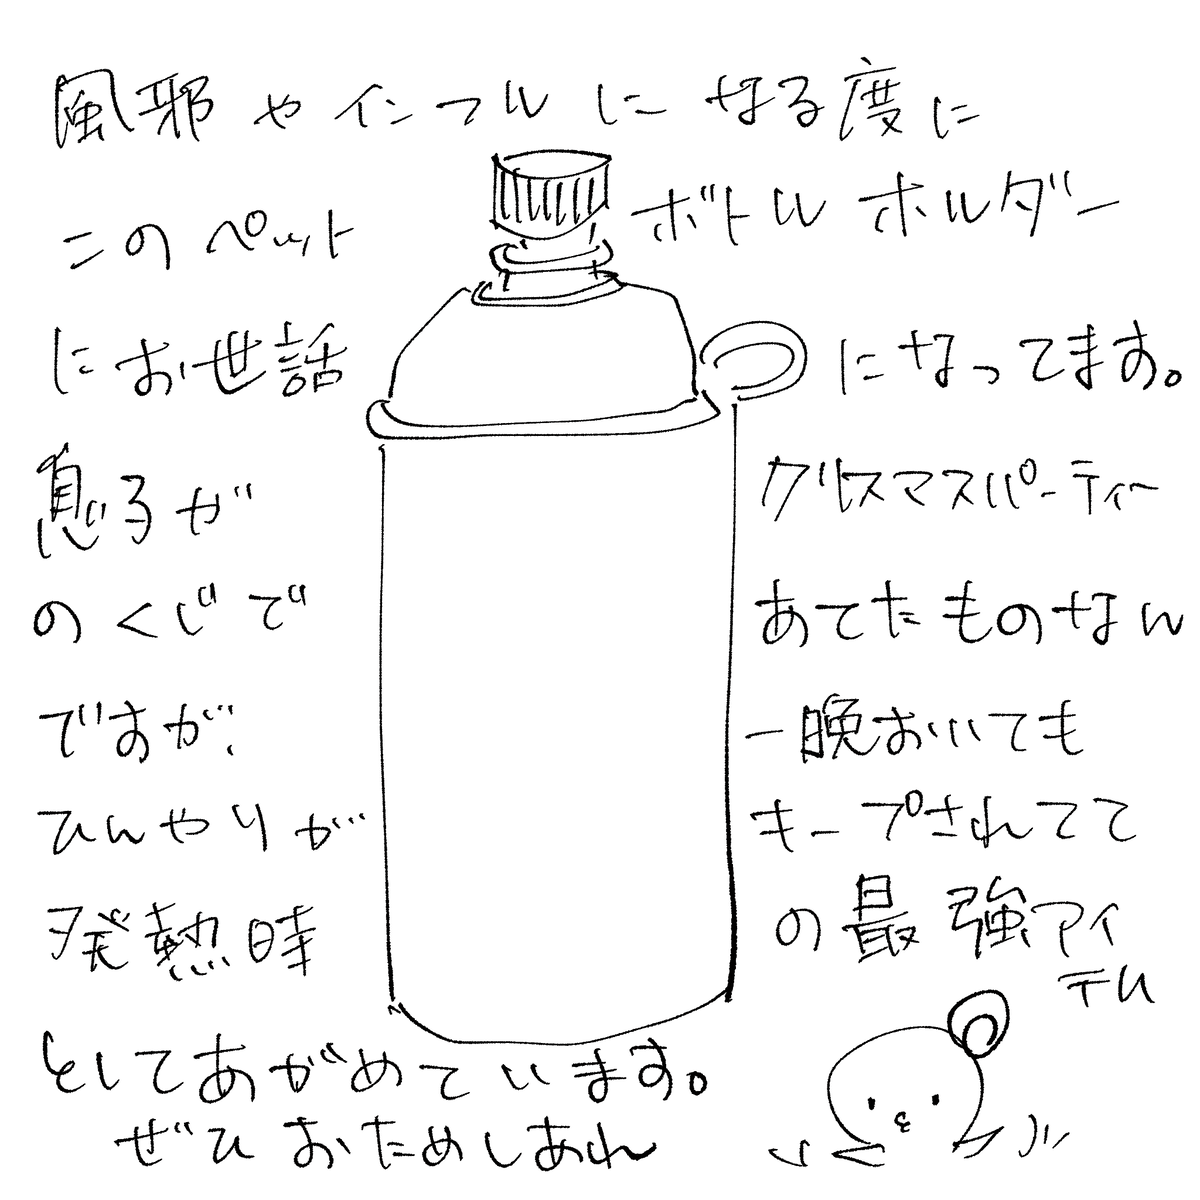 風邪やインフルになる度に
このペットボトルホルダー
にお世話になってます。
息子がクリスマスパーティー
のくじであてたものなん
ですが、一晩おいても
ひんやりがキープされてて
発熱時の最強アイ
テム
としてあがめています。
ぜひおためしあれ